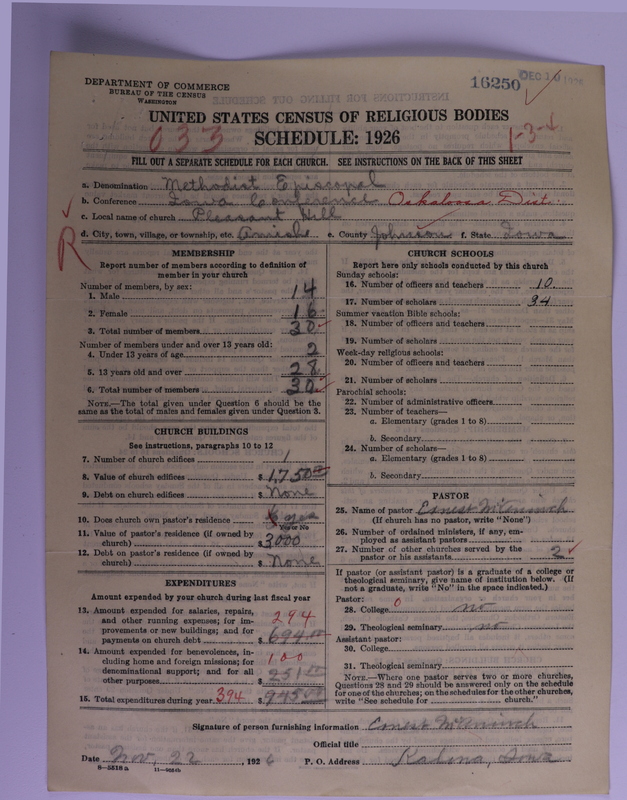 DEPARTMENT OF COMMERCE
BUREAU OF THE CENSUS
WASHINGTON
16250
DEC 1
UNITED STATES CENSUS OF RELIGIOUS BODIES
033
SCHEDULE: 1926
1-3-4
FILL OUT A SEPARATE SCHEDULE FOR EACH CHURCH. SEE INSTRUCTIONS ON THE BACK OF THIS SHEET
a. Denomination Methodist Episcopal
b. Conference Iowa Conference Oskaloosa Dist.
c. Local name of church Pleasant Hill
d. City, town, village, or township, etc. Amish e. County Johnson f. State Iowa
R
MEMBERSHIP
Report number of members according to definition of
member in your church
Number of members, by sex:
1. Male 14
2. Female 16
3. Total number of members 30
Number of members under and over 13 years old:
4. Under 13 years of age 2
5. 13 years old and over 28
6. Total number of members 30
NOTE.—The total given under Question 6 should be the
same as the total of males and females given under Question 3.
CHURCH BUILDINGS
See instructions, paragraphs 10 to 12
7. Number of church edifices 1
8. Value of church edifices $ 1,750 00
9. Debt on church edifices $ None
10. Does church own pastor's residence yes
Yes or No
11. Value of pastor's residence (if owned by
church) $ 3000
12. Debt on pastor's residence (if owned by
church) $ None
EXPENDITURES
Amount expended by your church during last fiscal year
13. Amount expended for salaries, repairs,
and other running expenses; for im-
provements or new buildings; and for
payments on church debt 294 $ 694 00
14. Amount expended for benevolences, in-
cluding home and foreign missions; for
denominational support; and for all
other purposes 100 $ 251 00
15. Total expenditures during year 394 $ 945 00
CHURCH SCHOOLS
Report here only schools conducted by this church
Sunday schools:
16. Number of officers and teachers 10
17. Number of scholars 34
Summer vacation Bible schools:
18. Number of officers and teachers
19. Number of scholars
Week-day religious schools:
20. Number of officers and teachers
21. Number of scholars
Parochial schools:
22. Number of administrative officers
23. Number of teachers—
a. Elementary (grades 1 to 8)
b. Secondary
24. Number of scholars—
a. Elementary (grades 1 to 8)
b. Secondary
PASTOR
25. Name of pastor Ernest McAninch
(If church has no pastor, write "None")
26. Number of ordained ministers, if any, em-
ployed as assistant pastors
27. Number of other churches served by the
pastor or his assistants 2
If pastor (or assistant pastor) is a graduate of a college or
theological seminary, give name of institution below. (If
not a graduate, write "No" in the space indicated.)
Pastor: 0
28. College no
29. Theological seminary no
Assistant pastor:
30. College
31. Theological seminary
NOTE.—Where one pastor serves two or more churches,
Questions 28 and 29 should be answered only on the schedule
for one of the churches; on the schedules for the other churches,
write "See schedule for church."
Signature of person furnishing information Ernest McAninch
Official title
Date Nov. 22, 1926 P. O. Address Kalona, Iowa
8—5318 a